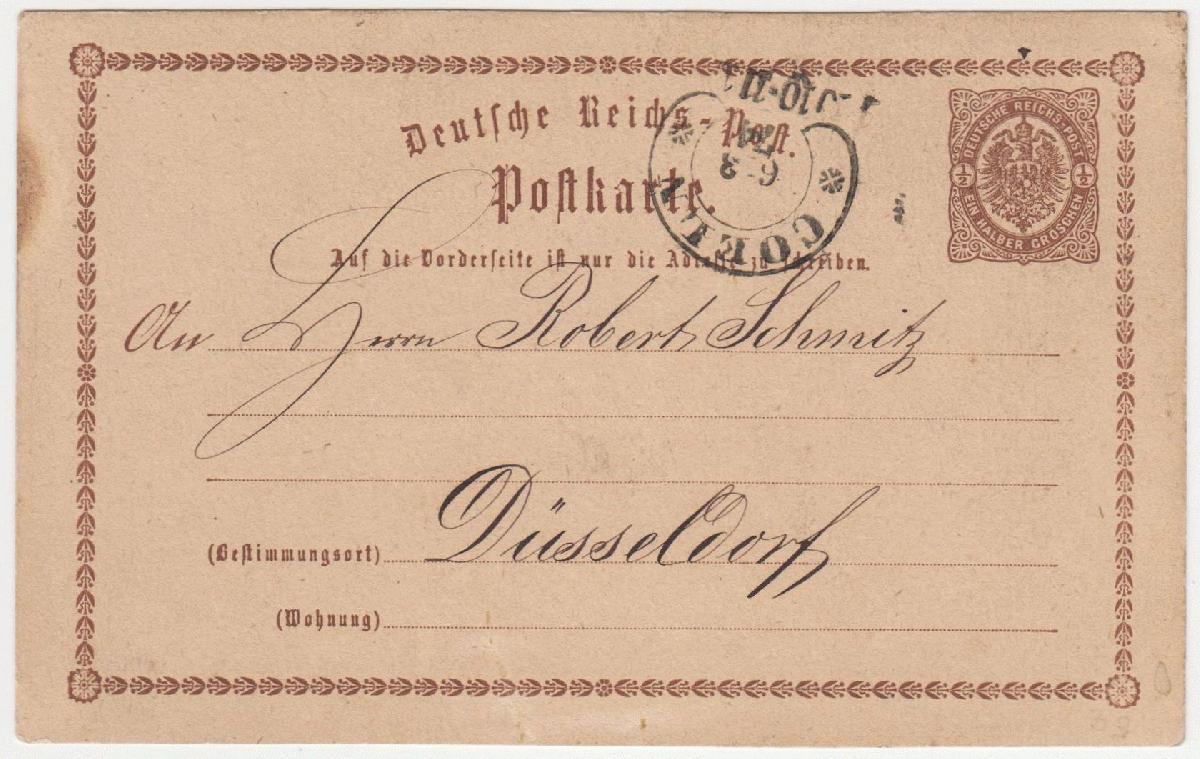 Deutsche Reichs-Post.
Postkarte.
Auf die Vorderseite ist nur die Adresse zu schreiben.
DEUTSCHE REICHS-POST
½ ½
EIN HALBER GROSCHEN
COELN
6 3
74
10-11
An Herrn Robert Schmitz
(Bestimmungsort) Düsseldorf
(Wohnung)